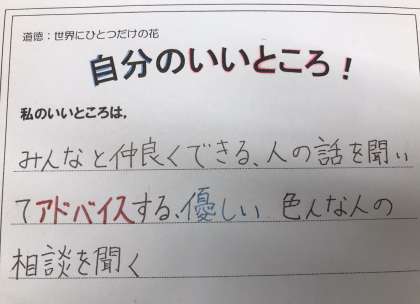 道徳：世界にひとつだけの花
自分のいいところ！
私のいいところは，
みんなと仲良くできる、人の話を聞い
てアドバイスする、優しい 色んな人の
相談を聞く